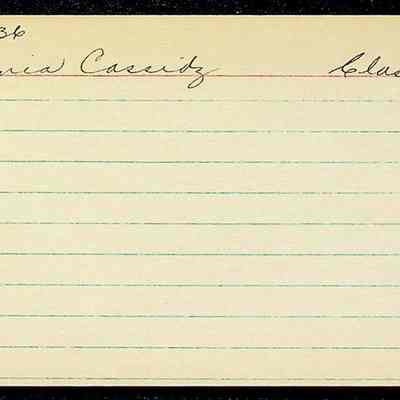 36
nia Cassidy Clas